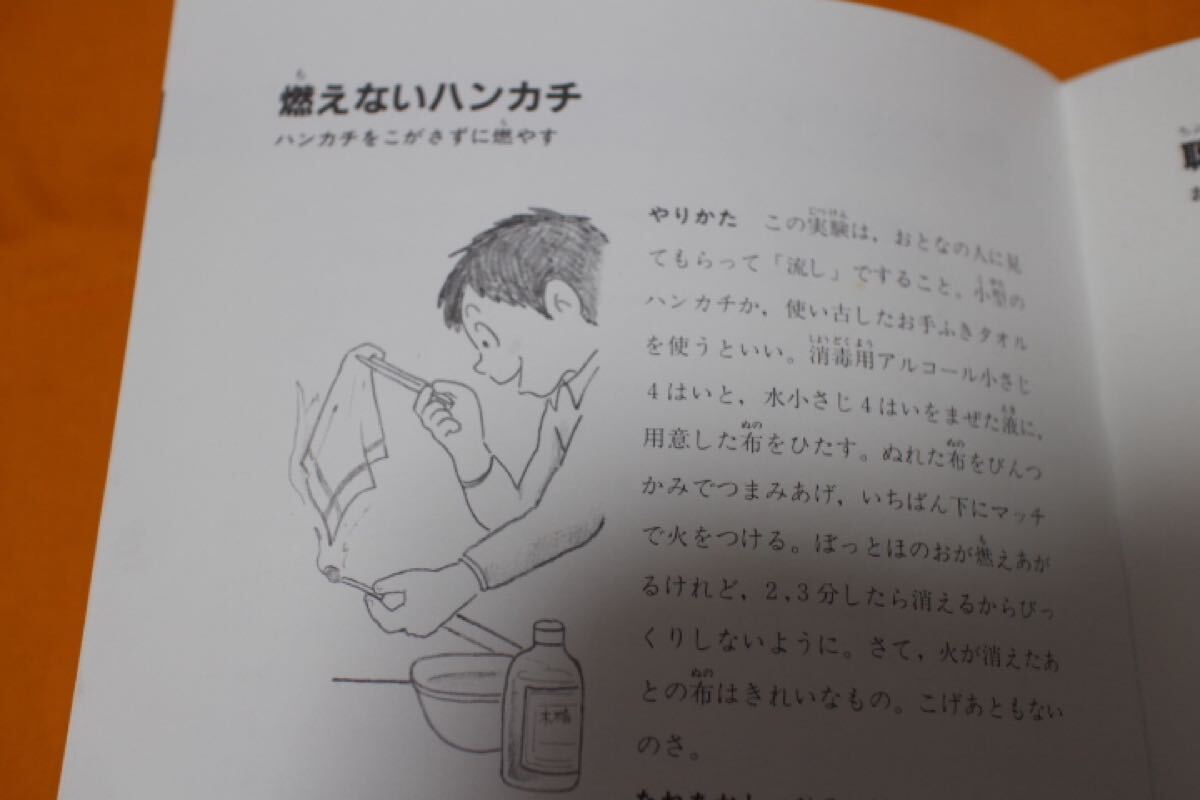 燃えないハンカチ
ハンカチをこがさずに燃やす
やりかた この実験は，おとなの人に見
てもらって「流し」ですること。小型の
ハンカチか，使い古したお手ふきタオル
を使うといい。消毒用アルコール小さじ
4はいと，水小さじ4はいをまぜた液に，
用意した布をひたす。ぬれた布をびんつ
かみでつまみあげ，いちばん下にマッチ
で火をつける。ぼっとほのおが燃えあが
るけれど，2，3分したら消えるからびっ
くりしないように。さて，火が消えたあ
との布はきれいなもの。こげあともない
のさ。